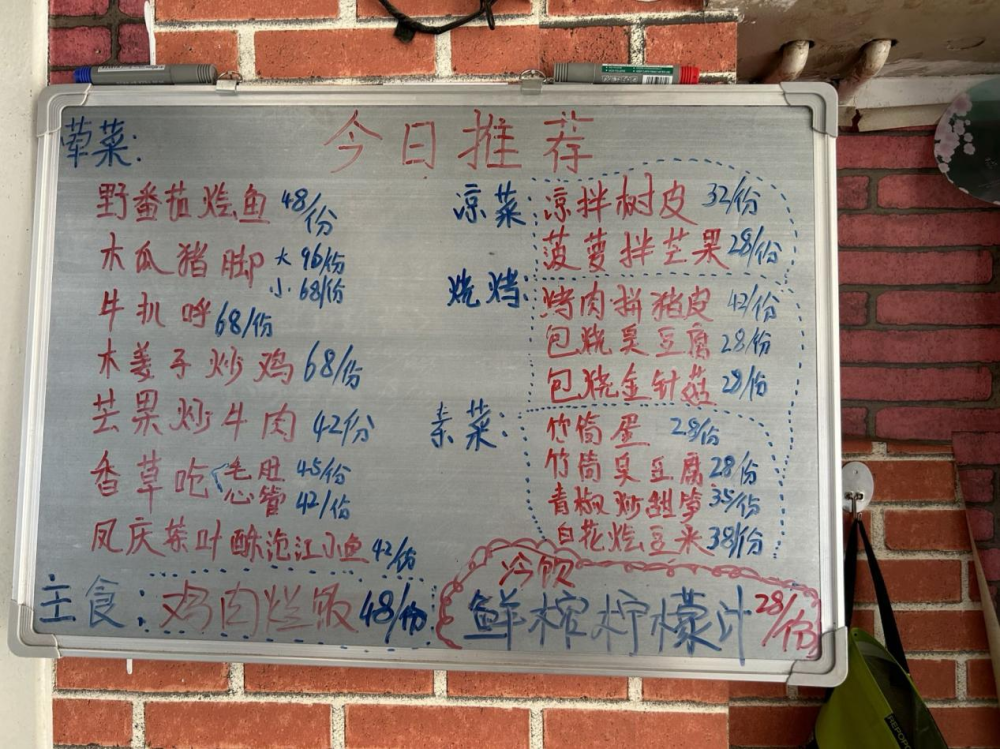 今日推荐
荤菜:
野番茄烩鱼 48/份
木瓜猪脚 大 96/份
小 68/份
牛扒呼 68/份
木姜子炒鸡 68/份
芒果炒牛肉 42/份
香草吃 毛肚 45/份
心管 42/份
凤庆茶叶酥泡江小鱼 42/份
主食: 鸡肉烂饭 48/份
凉菜: 凉拌树皮 32/份
菠萝拌芒果 28/份
烧烤: 烤肉拼猪皮 42/份
包烧臭豆腐 28/份
包烧金针菇 28/份
素菜: 竹筒蛋 28/份
竹筒臭豆腐 28/份
青椒炒甜笋 35/份
白花烩豆米 38/份
冷饮
鲜榨柠檬汁 28/份